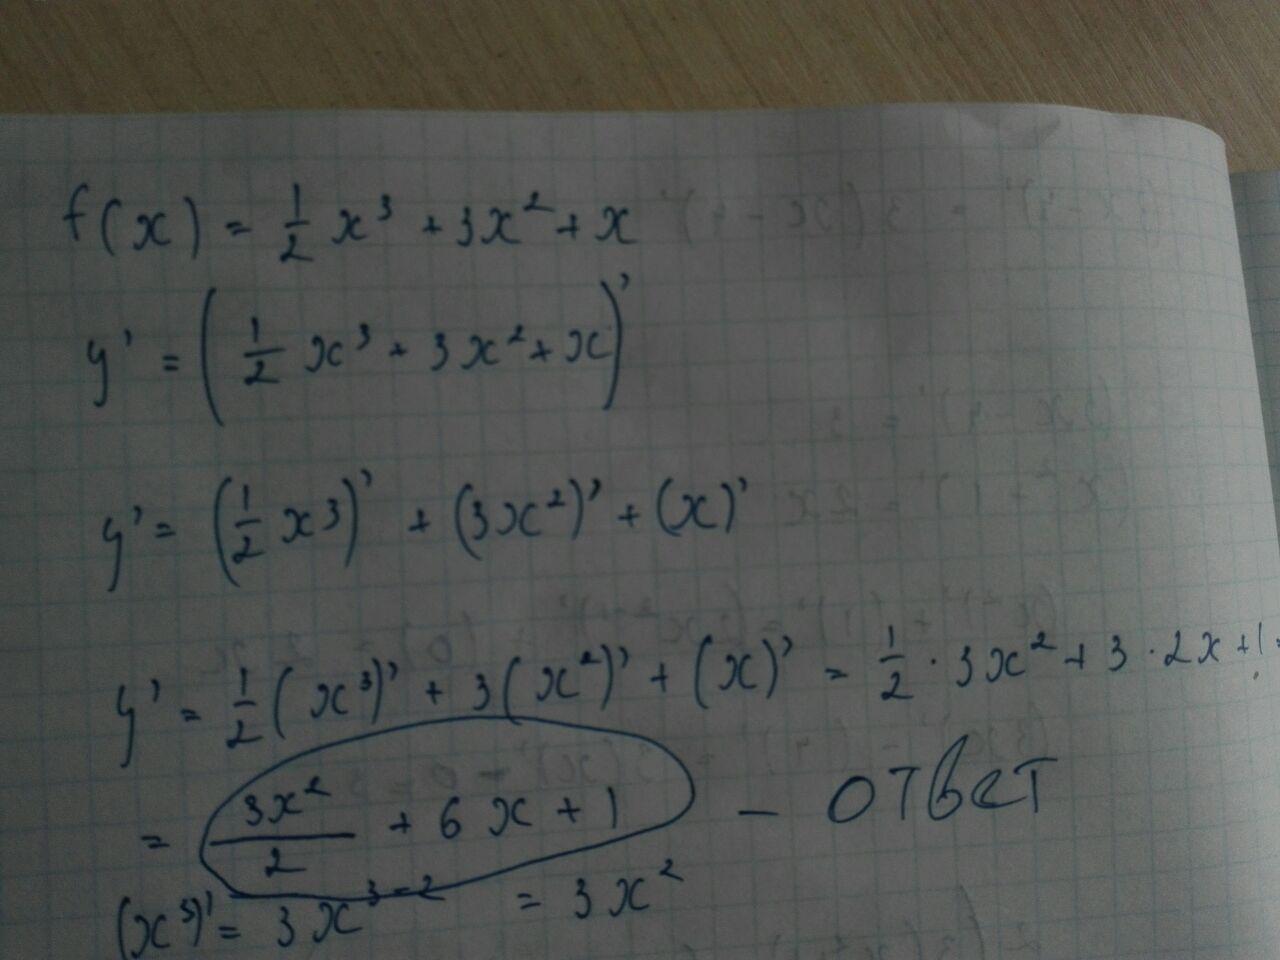 f(x) = 1/2 x³ + 3x² + x
y' = (1/2 x³ + 3x² + x)'
y' = (1/2 x³)' + (3x²)' + (x)'
y' = 1/2 (x³)' + 3(x²)' + (x)' = 1/2 · 3x² + 3 · 2x + 1 =
= 3x²/2 + 6x + 1 — ответ
(x³)' = 3x³⁻² = 3x²